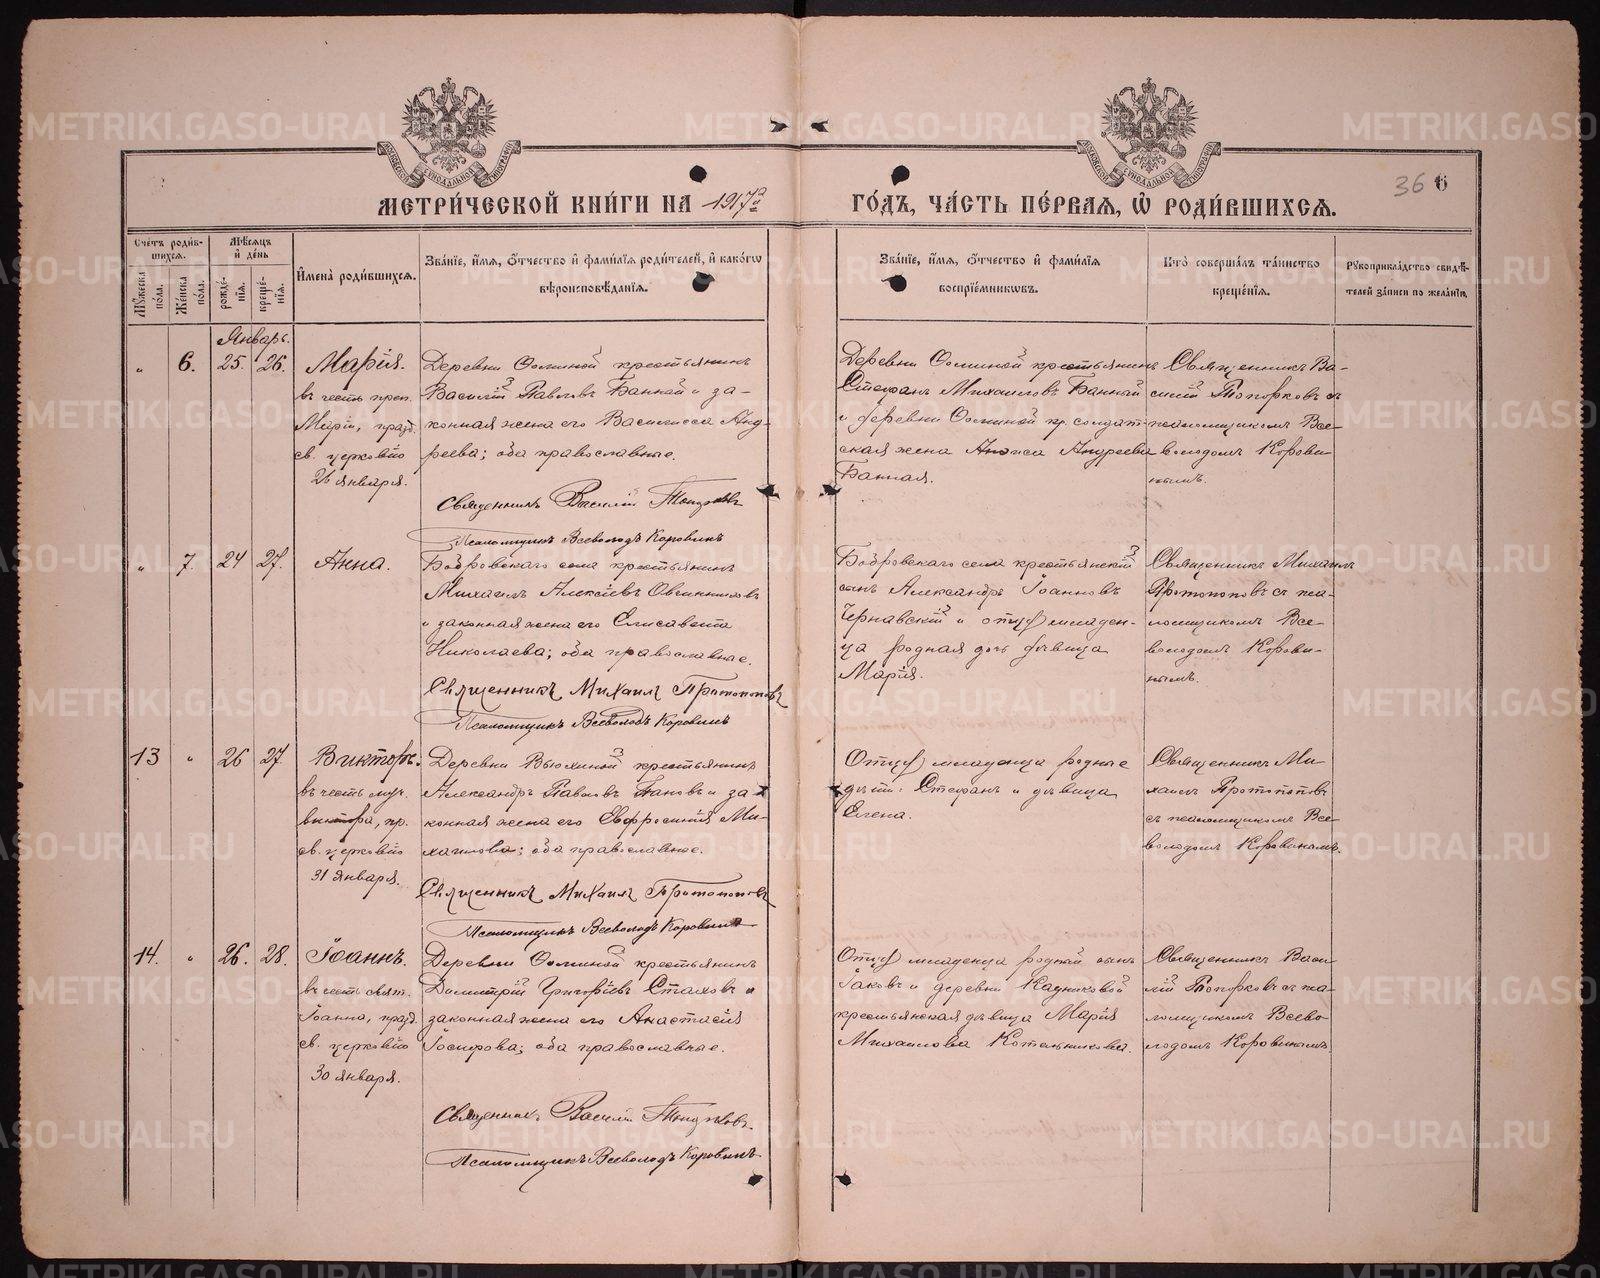 МЕТРИ́ЧЕСКОЙ КНИ́ГИ НА 1917й ГО́ДЪ, ЧА́СТЬ ПЕ́РВАѦ, Ѡ҆ РОДИ́ВШИХСѦ.
36 6
Сче́тъ роди́в-
шихсѧ.
Мꙋ́жеска по́ла.
Же́нска по́ла.
Мѣ́сѧцъ
и҆ де́нь
рожде́-
нїѧ.
креще́-
нїѧ.
И҆мена̀ роди́вшихсѧ.
Зва́нїе, и҆́мѧ, ѻ҆́тчество и҆ фами́лїѧ роди́телей, и҆ како́гѡ
вѣроисповѣ́данїѧ.
Зва́нїе, и҆́мѧ, ѻ҆́тчество и҆ фами́лїѧ
воспрїе́мникѡвъ.
Кто̀ соверша́лъ та́инство
креще́нїѧ.
Рꙋкоприкла́дство свидѣ́-
телей за́писи по жела́нїю.
Январь.
„ 6. 25. 26.
Марія.
въ честь преп.
Маріи, празд.
св. церковію
26 января.
Деревни Ѳоминой крестьянинъ
Василій Павловъ Банный и за-
конная жена его Василисса Анд-
реева; оба православные.
Священникъ Василій Топорковъ
Псаломщикъ Всеволодъ Коровинъ
Деревни Ѳоминой крестьянинъ
Стефанъ Михаиловъ Банный
и деревни Ѳоминой кр. солдат-
ская жена Анисія Андреева
Банная.
Священникъ Ва-
силій Топорковъ съ
псаломщикомъ Все-
володомъ Корови-
нымъ.
„ 7. 24 27.
Анна.
Бобровскаго села крестьянинъ
Михаилъ Алексіевъ Овчинниковъ
и законная жена его Елисавета
Николаева; оба православные.
Священникъ Михаилъ Протопоповъ
Псаломщикъ Всеволодъ Коровинъ
Бобровскаго села крестьянскій
сынъ Александръ Іоанновъ
Чернавскій и отцу младен-
ца родная дочь дѣвица
Марія.
Священникъ Михаилъ
Протопоповъ съ пса-
ломщикомъ Все-
володомъ Корови-
нымъ.
13 „ 26 27
Викторъ.
въ честь муч.
Виктора, пр.
св. церковію
31 января.
Деревни Вьюхиной крестьянинъ
Александръ Павловъ Пановъ и за-
конная жена его Евфросинія Ми-
хаилова; оба православные.
Священникъ Михаилъ Протопоповъ
Псаломщикъ Всеволодъ Коровинъ
Отцу младенца родные
дѣти: Стефанъ и дѣвица
Елена.
Священникъ Ми-
хаилъ Протопоповъ
съ псаломщикомъ Все-
володомъ Коровинымъ.
14. „ 26. 28.
Іоаннъ.
въ честь свят.
Іоанна, празд.
св. церковію
30 января.
Деревни Ѳоминой крестьянинъ
Димитрій Григоріевъ Стаховъ и
законная жена его Анастасія
Іосифова; оба православные.
Священникъ Василій Топорковъ.
Псаломщикъ Всеволодъ Коровинъ
Отцу младенца родной сынъ
Іаковъ и деревни Кадниковой
крестьянская дѣвица Марія
Михаилова Котельникова.
Священникъ Васи-
лій Топорковъ съ пса-
ломщикомъ Всево-
лодомъ Коровинымъ.
METRIKI.GASO-URAL.RU